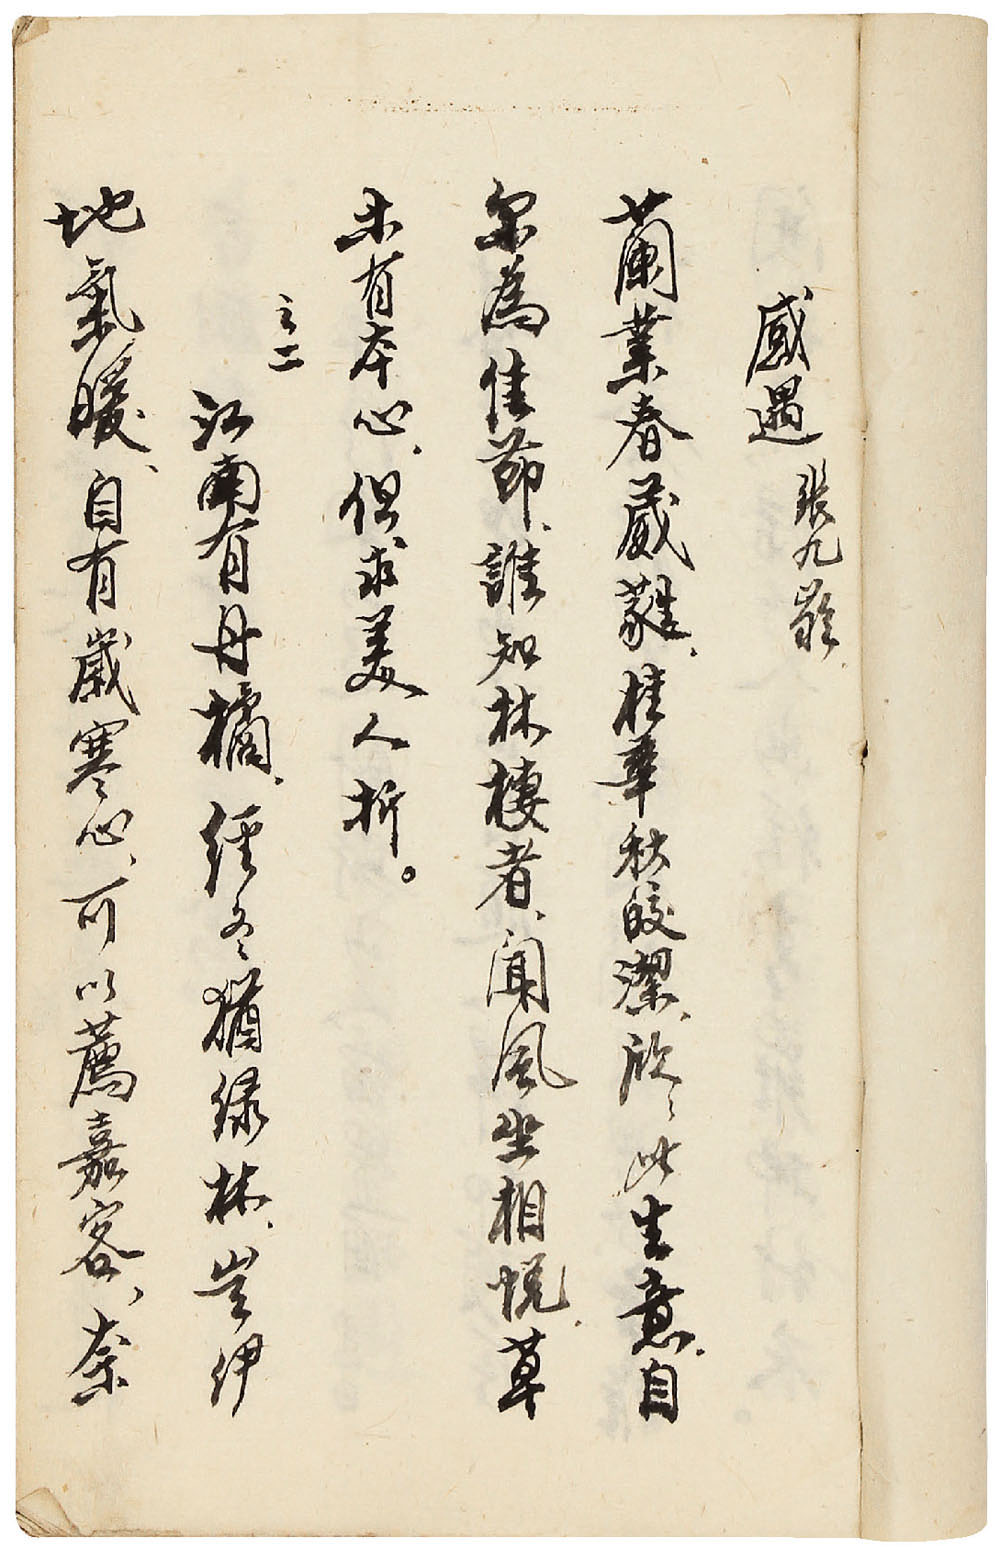 感遇 張九齡
蘭葉春葳蕤、桂華秋皎潔、欣〻此生意、自
尔為佳節、誰知林棲者、聞風坐相悅、草
木有本心、但求美人折。
之二
江南有丹橘、經冬猶綠林、豈伊
地氣暖、自有歲寒心、可以薦嘉客、奈